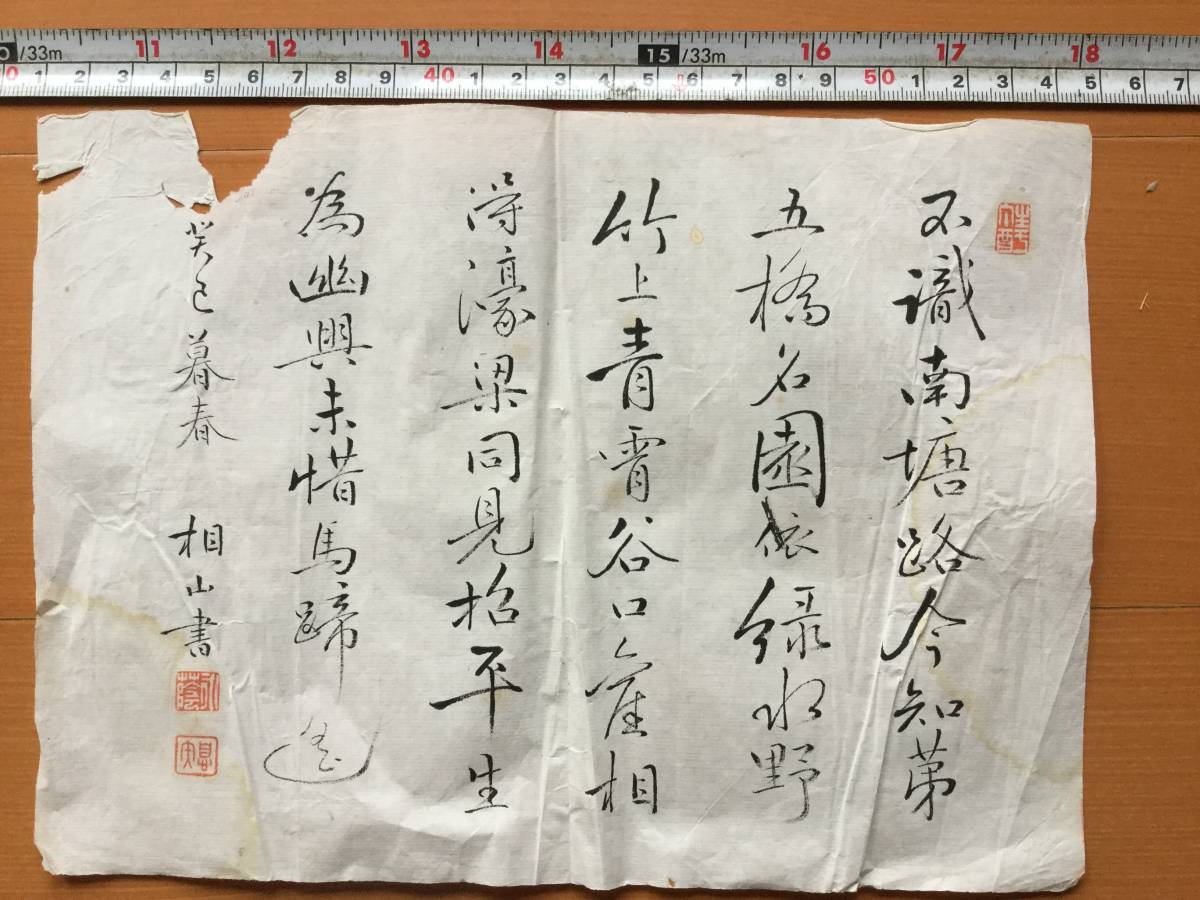 /33m 11 12 13 14 15/33m 16 17 18
0 1 2 3 4 5 6 7 8 9 40 1 2 3 4 5 6 7 8 9 50 1 2 3 4 5 6 7
不識南塘路今知苐
五橋名園依綠水野
竹上青霄谷口舊相
得濠梁同見招平生
為幽興未惜馬蹄遙
癸巳暮春 相山書